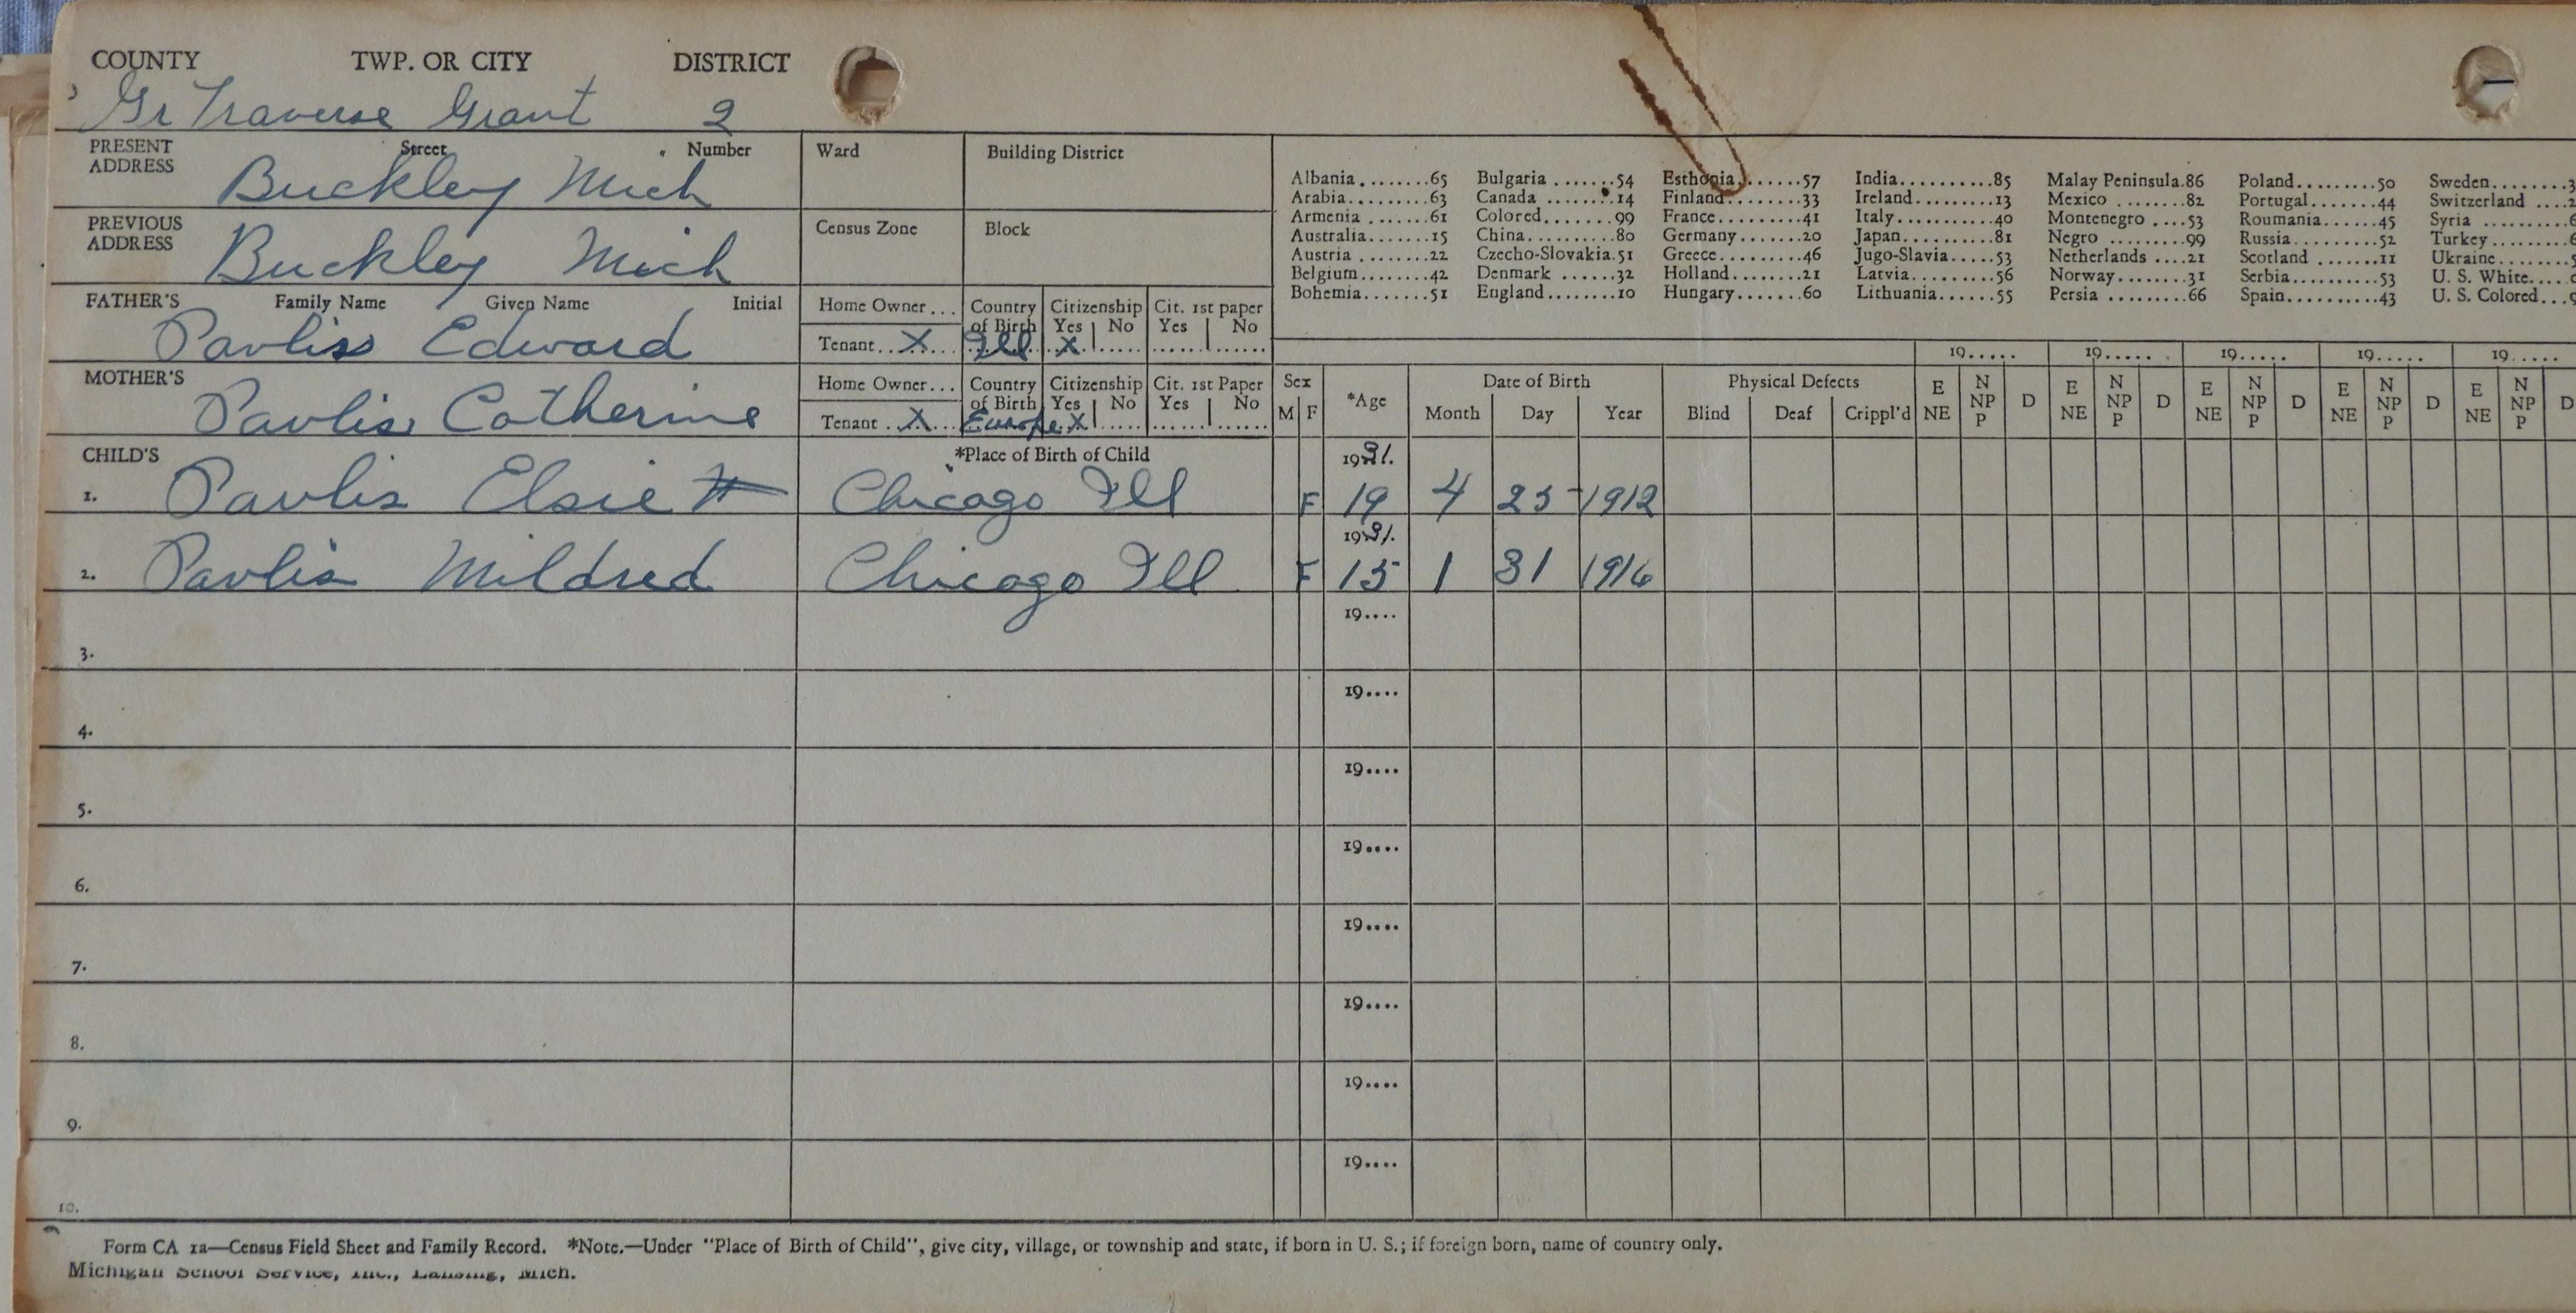 COUNTY TWP. OR CITY DISTRICT
Gr Traverse Grant 2
PRESENT ADDRESS Street Number Ward Building District
Buckley Mich
PREVIOUS ADDRESS Census Zone Block
Buckley Mich
Albania........65 Bulgaria.......54 Esthonia.......57 India..........85 Malay Peninsula.86 Poland.........50 Sweden........3
Arabia........63 Canada........14 Finland........33 Ireland.........13 Mexico........82 Portugal.......44 Switzerland ....2
Armenia.......61 Colored.......99 France.........41 Italy..........40 Montenegro....53 Roumania......45 Syria ........6
Australia.......15 China..........80 Germany.......20 Japan..........81 Negro.........99 Russia.........52 Turkey........6
Austria........22 Czecho-Slovakia.51 Greece.........46 Jugo-Slavia.....53 Netherlands....21 Scotland.......11 Ukraine........5
Belgium........42 Denmark......32 Holland........21 Latvia.........56 Norway........31 Serbia.........53 U. S. White....
Bohemia.......51 England........10 Hungary.......60 Lithuania......55 Persia.........66 Spain..........43 U. S. Colored...9
FATHER'S Family Name Given Name Initial Home Owner... Country of Birth Citizenship Yes No Cit. 1st paper Yes No
Pavliss Edward Tenant..X... Ill X
19..... 19..... 19..... 19..... 19.....
MOTHER'S Home Owner... Country of Birth Citizenship Yes No Cit. 1st Paper Yes No
Pavlis Catherine Tenant..X... Europe X
Sex M F *Age Date of Birth Month Day Year Physical Defects Blind Deaf Crippl'd E NE N NP P D E NE N NP P D E NE N NP P D E NE N NP P D E NE N NP P D
CHILD'S *Place of Birth of Child 1931.
1. Pavlis Elsie Chicago Ill F 19 4 25 1912
1931.
2. Pavlis Mildred Chicago Ill F 15 1 31 1916
19....
3.
19....
4.
19....
5.
19....
6.
19....
7.
19....
8.
19....
9.
19....
10.
Form CA 1a—Census Field Sheet and Family Record. *Note.—Under "Place of Birth of Child", give city, village, or township and state, if born in U. S.; if foreign born, name of country only.
Michigan School Service, Inc., Lansing, Mich.